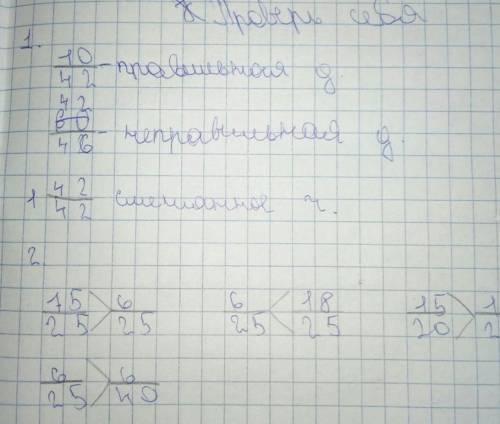 Проверь себя
1.
10/42 - правильная д.
42
60/46 - неправильная д.
1 42/42 смешанное ч.
2.
15/25 > 6/25   6/25 < 18/25   15/20 >
6/25 > 6/40